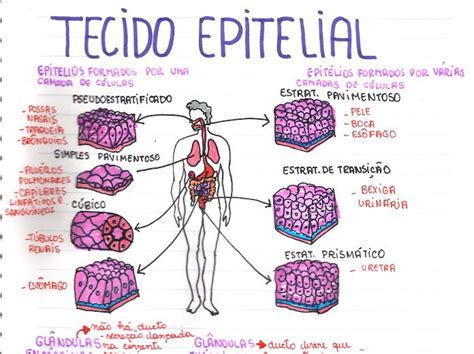 TECIDO EPITELIAL
EPITÉLIOS FORMADOS POR UMA
CAMADA DE CÉLULAS
PSEUDOESTRATIFICADO
- FOSSAS
NASAIS
- TRAQUEIA
- BRÔNQUIOS
SIMPLES PAVIMENTOSO
- ALVÉOLOS
PULMONARES
- CAPILARES
LINFÁTICOS E
SANGUÍNEOS
CÚBICO
- TÚBULOS
RENAIS
- ESTÔMAGO
EPITÉLIOS FORMADOS POR VÁRIAS
CAMADAS DE CÉLULAS
ESTRAT. PAVIMENTOSO
- PELE
- BOCA
- ESÔFAGO
ESTRAT. DE TRANSIÇÃO
- BEXIGA
URINÁRIA
ESTRAT. PRISMÁTICO
- URETRA
não há ducto
secreção lançada
GLÂNDULAS
na corrente
GLÂNDULAS
ducto onde que